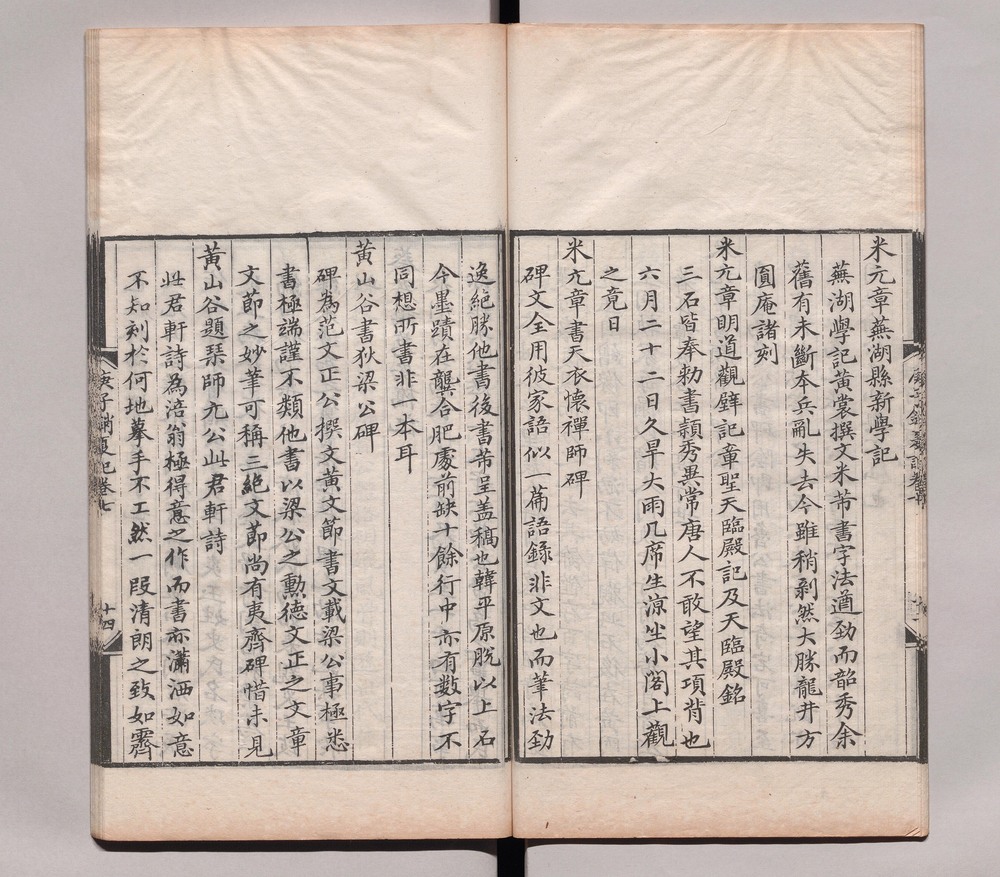 米元章蕪湖縣新學記
蕪湖學記黃裳撰文米芾書字法遒勁而韶秀余
舊有未斷本兵亂失去今雖稍剝然大勝龍井方
圓庵諸刻
米元章明道觀壁記章聖天臨殿記及天臨殿銘
三石皆奉勑書頴秀異常唐人不敢望其項背也
六月二十二日久旱大雨几席生涼坐小閣上觀
之竟日
米元章書天衣懷禪師碑
碑文全用彼家語似一篇語録非文也而筆法勁
逸絕勝他書後書芾呈盖稿也韓平原脫以上石
今墨蹟在龔合肥處前缺十餘行中亦有數字不
同想所書非一本耳
黃山谷書狄梁公碑
碑為范文正公撰文黃文節書文載梁公事極悉
書極端謹不類他書以梁公之勳德文正之文章
文節之妙筆可稱三絕文節尚有夷齊碑惜未見
黃山谷題琹師元公此君軒詩
此君軒詩為涪翁極得意之作而書亦瀟洒如意
不知刻於何地摹手不工然一段清朗之致如霽
庚子銷夏記卷七
十四